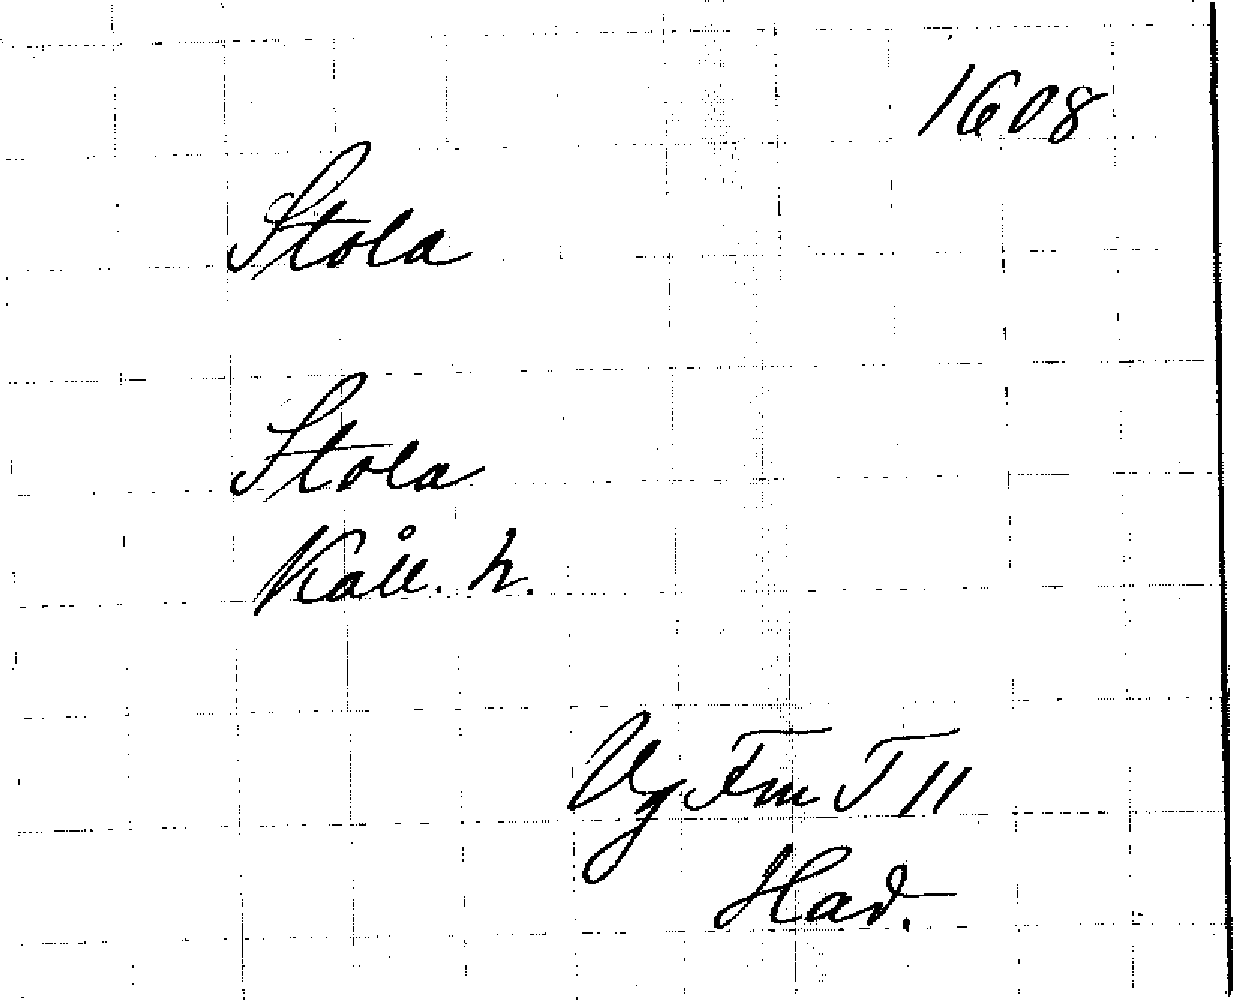 1608
Stola
Stola
Kåll. h.
Vg Fm T 11
Had.